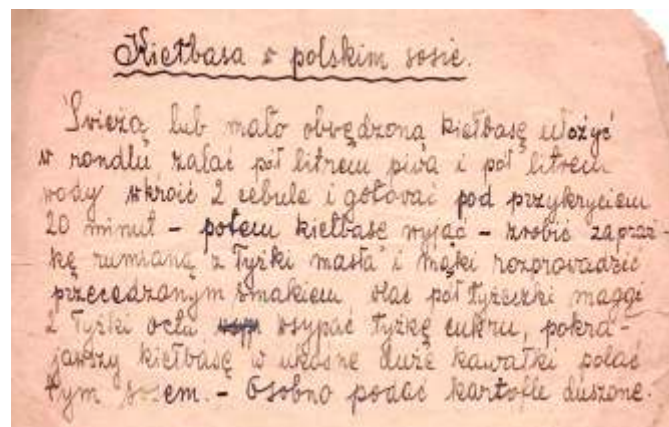 Kiełbasa w polskim sosie.
Świeżą lub mało obwędzoną kiełbasę ułożyć
w rondlu zalać pół litrem piwa i pół litrem
wody wkroić 2 cebule i gotować pod przykryciem
20 minut - potem kiełbasę wyjąć - zrobić zapraż-
kę rumianą z łyżki masła i mąki rozprowadzić
przecedzonym smakiem wlać pół łyżeczki maggi
2 łyżki octu wsypać łyżkę cukru, pokra-
jawszy kiełbasę w ukośne duże kawałki polać
tym sosem. - Osobno podać kartofle duszone.